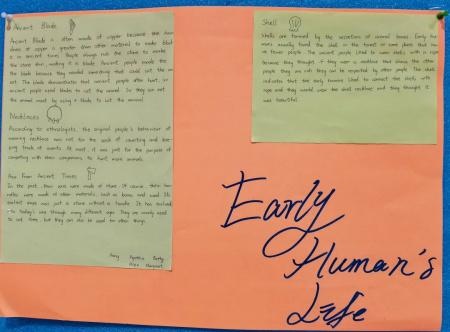 Ancient Blade
Ancient Blade is often made of copper because the
of copper is greater than other material to make blade
in ancient times. People always rub the stone to make
the stone thin, making it a blade. Ancient people made the
the blade because they needed something that could cut the
The blade demonstrates that ancient people after hunt,
ancient people used blade to cut the animal. So they can eat
the animal meat by using a blade to cut the animal.
Necklaces
According to ethnologists, the original people's behaviour of
wearing necklace was not for the sake of counting and
track of events. At most, it was just for the purpose of
competing with their companions to hunt more animals.
Axe From Ancient Times
In the past, their axes were made of stone. Of course, their
were made of other materials, such as bones and wood. Its
earliest shape was just a stone without a handle. It has evolved
to today's axe through many different ages. They are mainly used
to cut trees, but they can also be used for other things.
Shell
Shells are formed by the secretions of animal bones. Early
usually found the shell in the forest or some places that have
no fewer people. The ancient people liked to wear shells with a rope
because they thought if they wear a necklace that shows the other
people they are rich they can be respected by other people. The shell
indicates that the early humans liked to connect the shells with
rope and they would wear the shell necklace and they thought it
was beautiful.
Early
Human's
Life